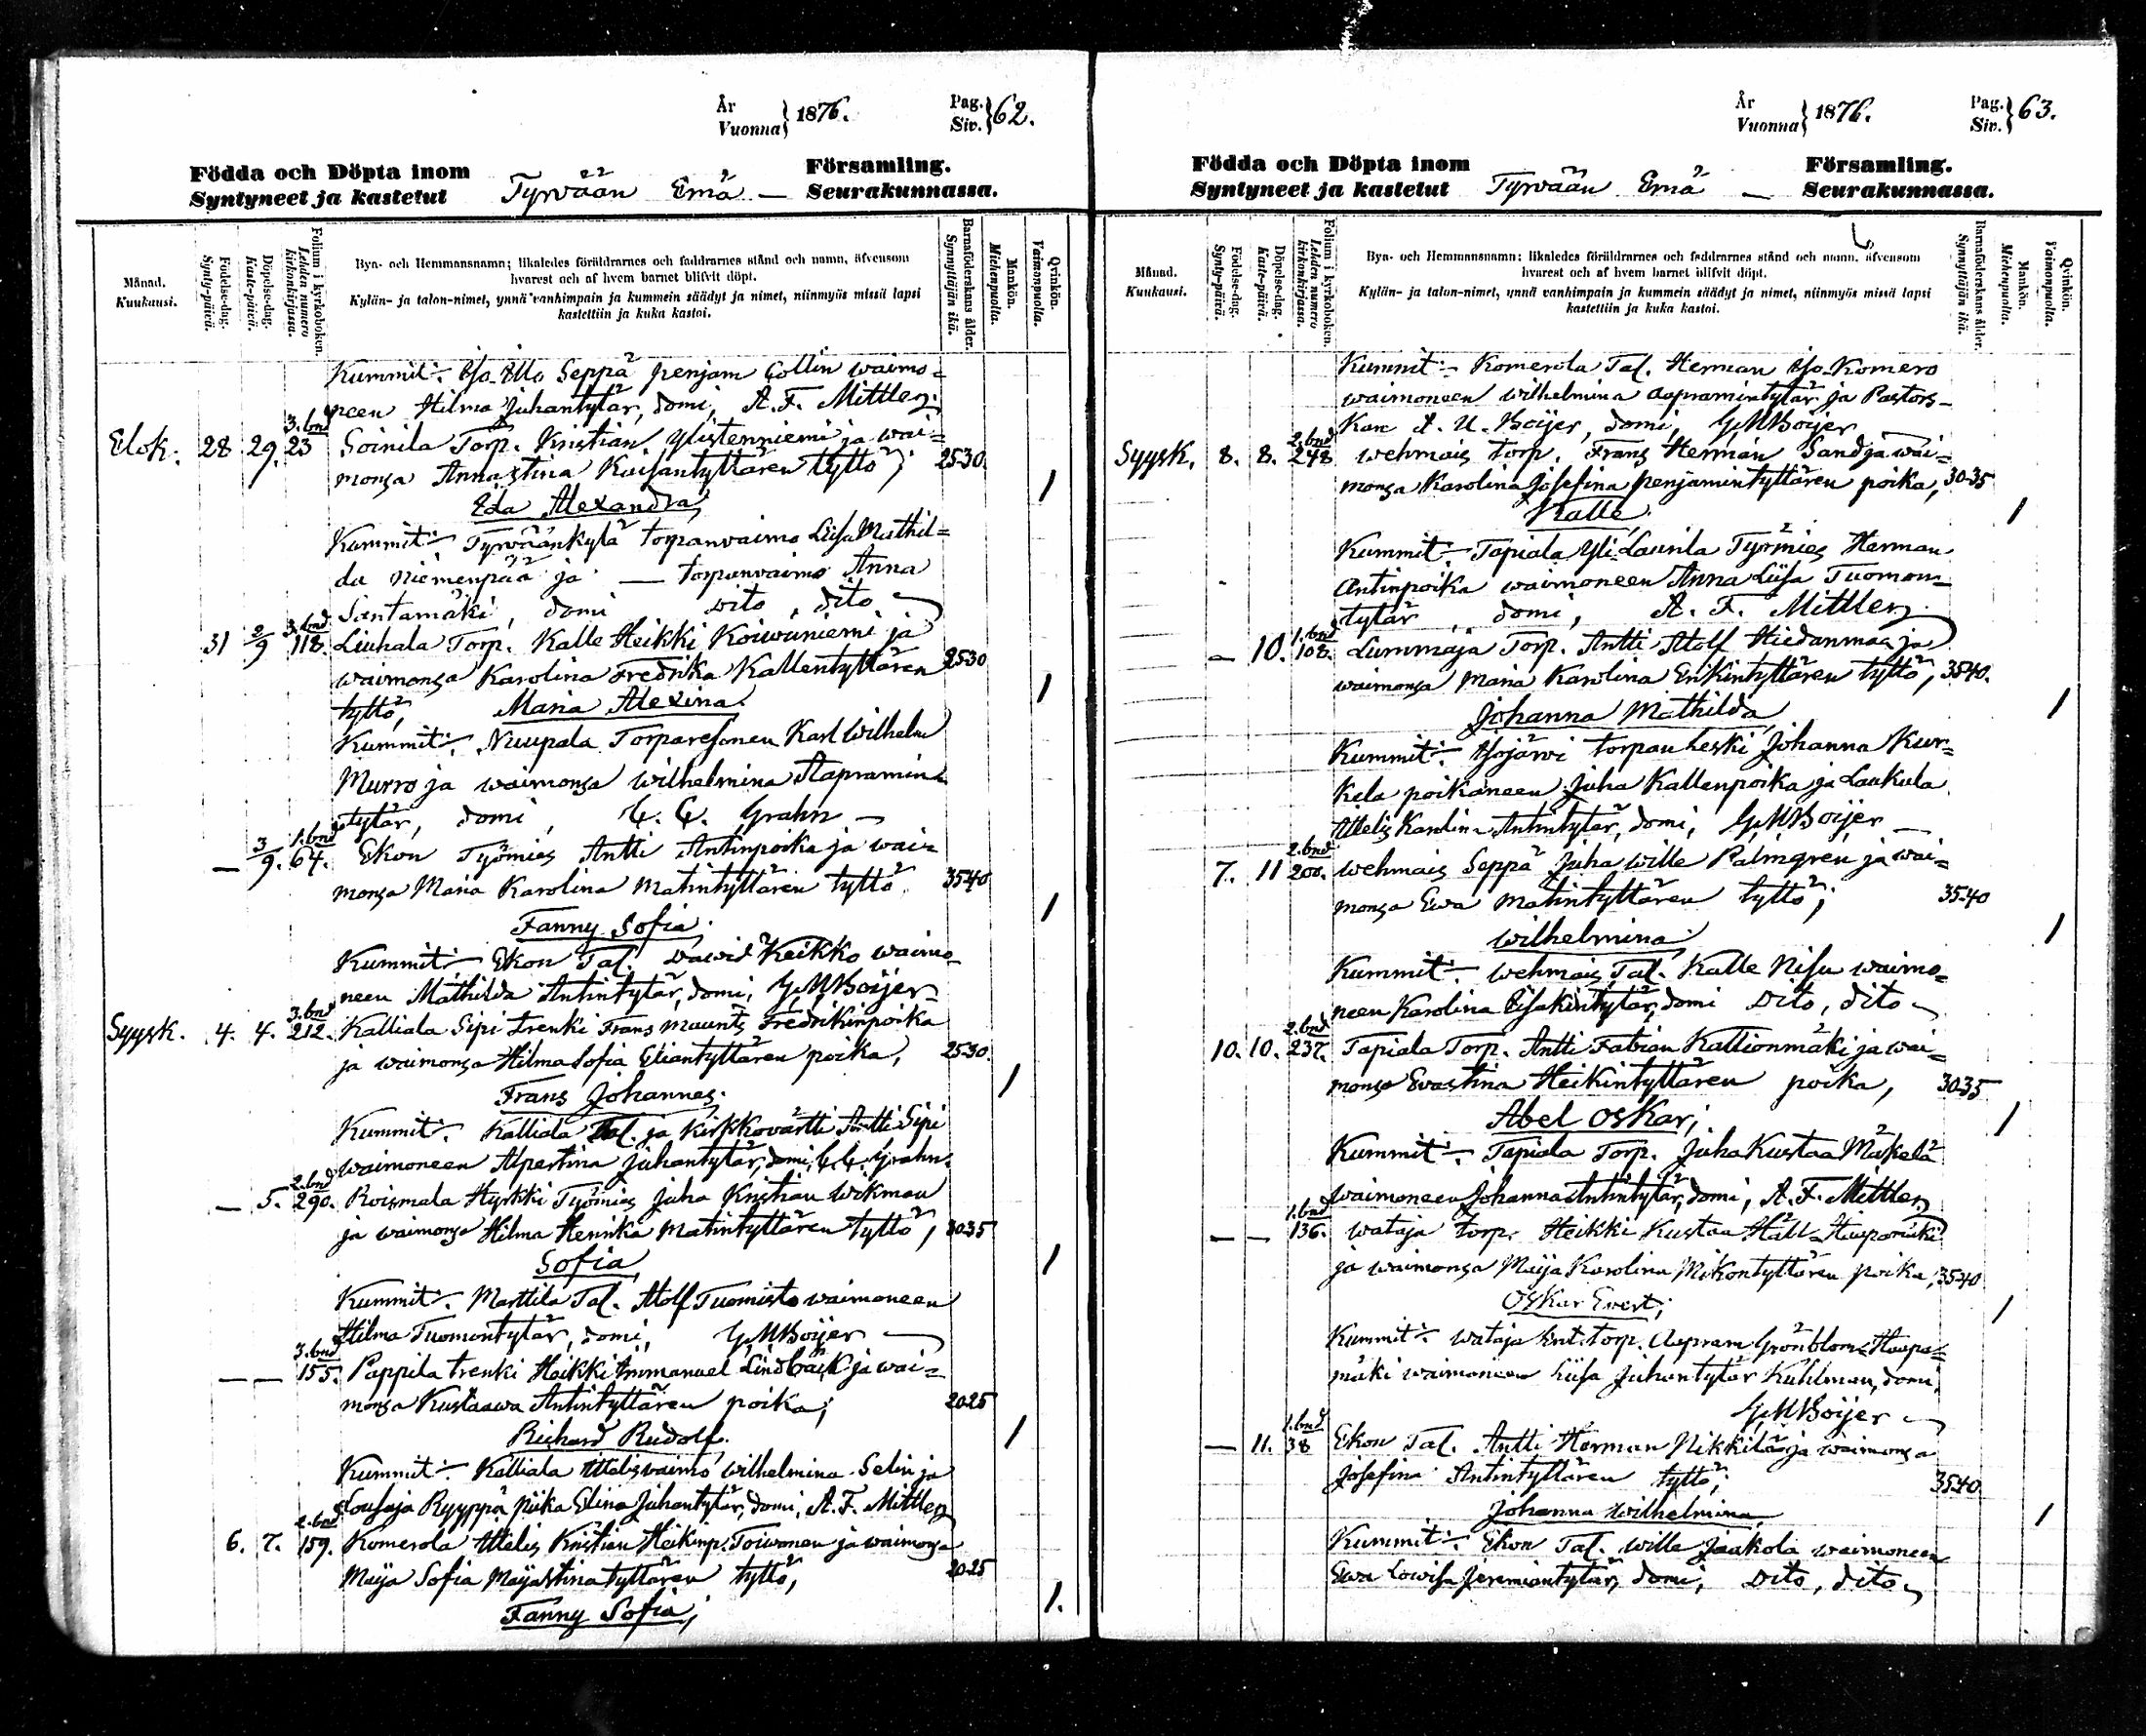 År
Vuonna } 1876.
Pag.
Siv. } 62.
Födda och Döpta inom Församling.
Syntyneet ja kastetut Tyrvään Emä — Seurakunnassa.
Månad.
Kuukausi.
Födelse-dag.
Synty-päivä.
Döpelse-dag.
Kaste-päivä.
Folium i kyrkoboken.
Lehden numero kirkonkirjassa.
Byn- och Hemmansnamn; likaledes föräldrarnes och faddrarnes stånd och namn, äfvensom
hvarest och af hvem barnet blifvit döpt.
Kylän- ja talon-nimet, ynnä vanhimpain ja kummein säädyt ja nimet, niinmyös missä lapsi
kastettiin ja kuka kastoi.
Barnaföderskans ålder.
Synnyttäjän ikä.
Mankön.
Miehenpuolta.
Qvinkön.
Vaimonpuolta.
Kummit:- Iso Illo Seppä penjam Collin waimo=
neen Hilma Juhantytär, domi, A. F. Mittler.
Elok. 28 29. 3. bnd 23 Soinila Torp. Kristian Ylistenniemi ja wai=
monsa Annastina Kaisantyttären tyttö; 25-30 1
Eda Alexandra,
Kummit:- Tyrväänkylä torpanvaimo Liisa Mathil=
da Niemenpää ja — torpanvaimo Anna
Santamäki, domi dito, dito
31 2/9 3. bnd 118. Liuhala Torp. Kalle Heikki Koivuniemi ja
waimonsa Karolina Fredrika Kallentyttären 25-30 1
tyttö, Maria Alexina.
Kummit:- Nuupala Torparesonen Karl Wilhelm
Murro ja waimonsa Wilhelmina Aapramin
tytär, domi, C. C. Grahn —
— 3/9. 1. bnd 64. Ekon Työmies Antti Antinpoika ja wai=
monsa Maria Karolina Matintyttären tyttö 35-40 1
Fanny Sofia.
Kummit:- Ekon Tal. Dawid Keikko waimo=
neen Mathilda Antintytär, domi, G M Boijer
Syysk. 4. 4. 3. bnd 212. Kalliala Sipi trenki Frans Maunts Fredrikinpoika
ja waimonsa Hilma Sofia Eliantyttären poika, 25-30. 1
Frans Johannes.
Kummit:- Kalliala Tal. ja Kirkkovärtti Antti Sipi
waimoneen Alpertina Juhantytär, domi, C. C. Grahn.
— 5. 2. bnd 290. Roismala Hyrkki Työmies Juha Kristian Wikman
ja waimonsa Hilma Henrika Matintyttären tyttö, 30-35 1
Sofia,
Kummit:- Marttila Tal. Atolf Tuomisto waimoneen
Hilma Tuomontytär, domi, G M Boijer —
— — 3. bnd 155. Pappila trenki Heikki Immanuel Lindbäck ja wai=
monsa Kustaawa Antintyttären poika; 20-25 1
Richard Rudolf.
Kummit:- Kalliala Ittelisvaimo Wilhelmina Selin ja
Sousaja Ryyppä piika Elina Juhantytär, domi, A. F. Mittler
6. 7. 2. bnd 159. Komerola Ittelis Kristian Heikinp. Toiwonen ja waimonsa
Maija Sofia Maijastinatyttären tyttö, 20-25
Fanny Sofia; 1.
År
Vuonna } 1876.
Pag.
Siv. } 63.
Födda och Döpta inom Församling.
Syntyneet ja kastetut Tyrvään Emä — Seurakunnassa.
Månad.
Kuukausi.
Födelse-dag.
Synty-päivä.
Döpelse-dag.
Kaste-päivä.
Folium i kyrkoboken.
Lehden numero kirkonkirjassa.
Byn- och Hemmansnamn; likaledes föräldrarnes och faddrarnes stånd och namn, äfvensom
hvarest och af hvem barnet blifvit döpt.
Kylän- ja talon-nimet, ynnä vanhimpain ja kummein säädyt ja nimet, niinmyös missä lapsi
kastettiin ja kuka kastoi.
Barnaföderskans ålder.
Synnyttäjän ikä.
Mankön.
Miehenpuolta.
Qvinkön.
Vaimonpuolta.
Kummit:- Komerola Tal. Herman Iso-Komero
waimoneen Wilhelmina Aapramintytär ja Pastors-
Kan A. U. Boijer, domi, G M Boijer
Syysk. 8. 8. 2. bnd 248 Wehmais torp. Frans Herman Sand ja wai=
monsa Karolina Josefina Penjamintyttären poika, 30-35
Kalle 1
Kummit:- Tapiala Yli-Laurila Työmies Herman
Antinpoika waimoneen Anna Liisa Tuomon=
tytär, domi, A. F. Mittler.
— 10. 1. bnd 108. Lummaja Torp. Antti Atolf Hiedanmaa ja
waimonsa Maria Karolina Erkintyttären tyttö, 35-40.
Johanna Mathilda 1
Kummit:- Isojärwi torpan leski Johanna Kur=
kela poikaneen Juha Kallenpoika ja Laukula
Ittelis Karolina Antintytär, domi, G M Boijer
7. 11 2. bnd 200. Wehmais Seppä Juha Wille Palmgren ja wai=
monsa Ewa Matintyttären tyttö; 35-40
Wilhelmina 1
Kummit:- Wehmais Tal. Kalle Nisu waimo=
neen Karolina Eisakintytär, domi dito, dito
10. 10. 2. bnd 237. Tapiala Torp. Antti Fabian Kallionmäki ja wai=
monsa Ewastina Heikintyttären poika, 30-35
Abel Oskar; 1
Kummit:- Tapiala Torp. Juha Kustaa Mäkelä
waimoneen Johanna Antintytär, domi, A. F. Mittler
— — 1. bnd 136. Wataja torp. Heikki Kustaa Häll-Haapamäki
ja waimonsa Maija Karolina Mikontyttären poika, 35-40
Oskar Evert; 1
Kummit:- Wataja torp. Aapram Grönblom-Haapa=
mäki waimoneen Liisa Juhantytär Kuhlman, domi,
G M Boijer
— 11. 1. bnd 38 Ekon Tal. Antti Herman Nikkilä ja waimonsa
Josefina Antintyttären tyttö; 35-40
Johanna Wilhelmina 1
Kummit:- Ekon Tal. Wille Jaakola waimoneen
Ewa Lowisa Jeremiantytär, domi, dito, dito